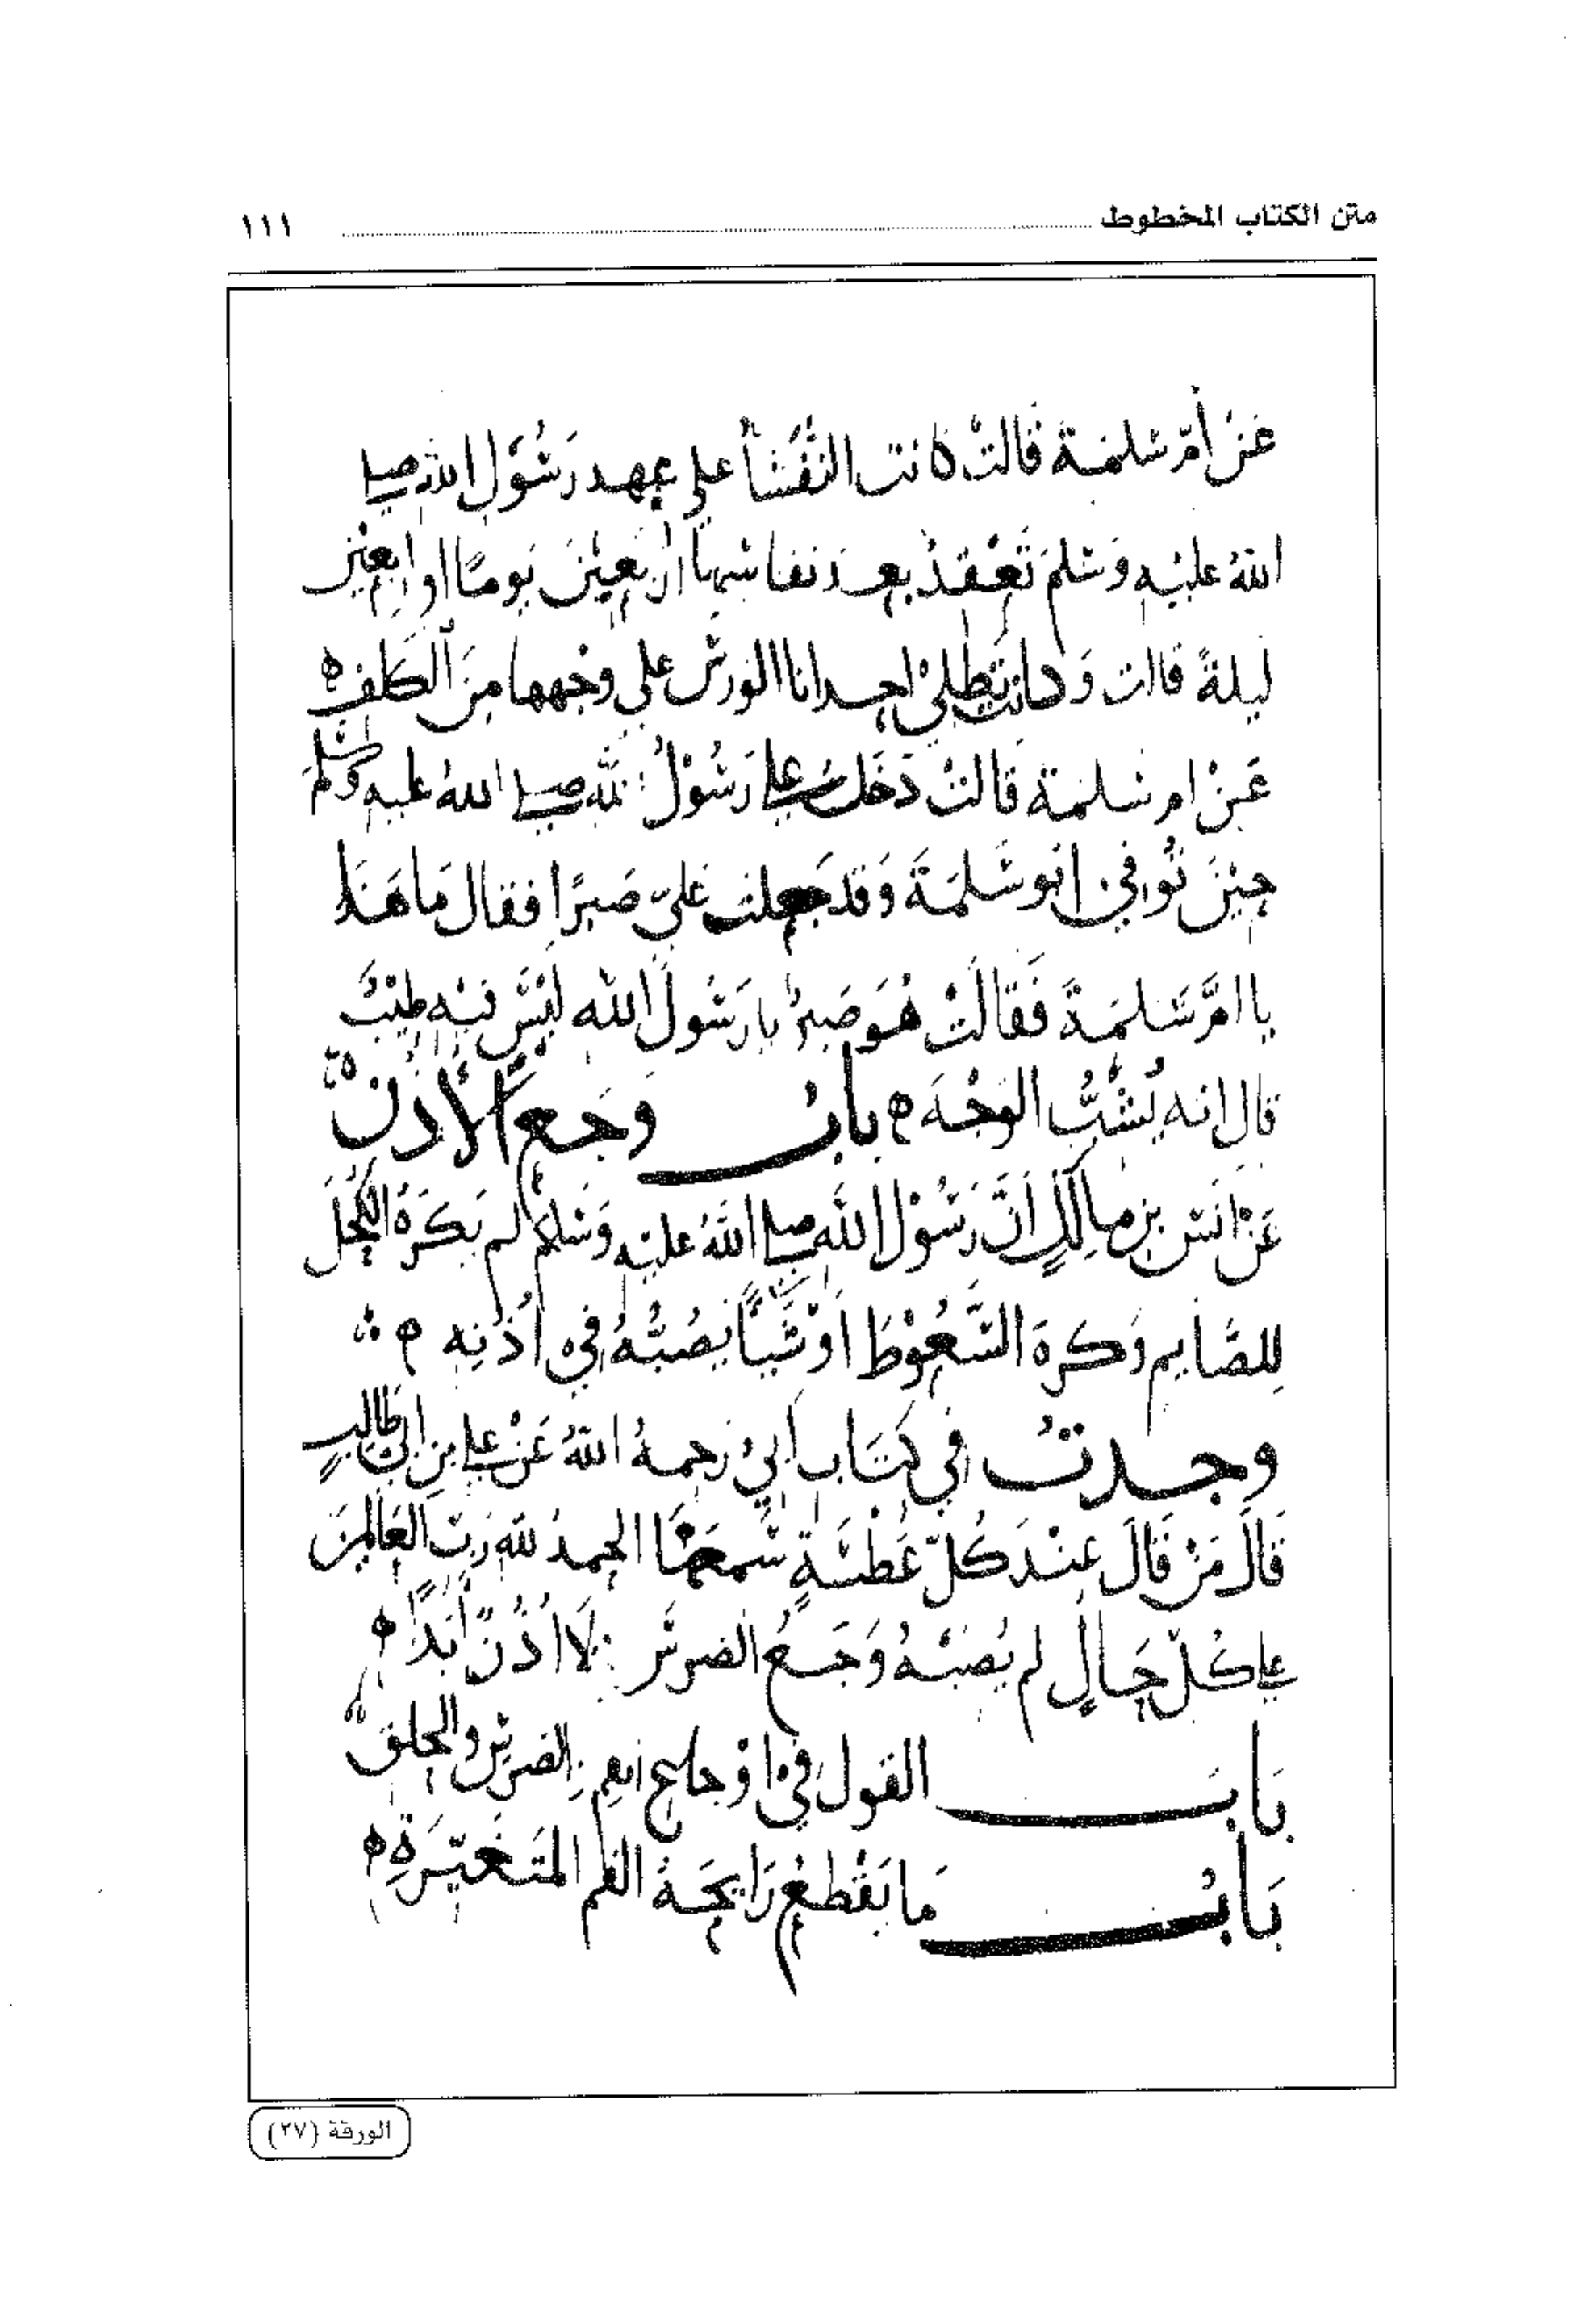 متن الكتاب المخطوط ١١١
عَنْ أمّ سَلمَة قَالتْ كانت النُّفَسَا على عهد رَسُوْل الله صلى
اللهُ عليْه وَسَلمَ تَقعُدُ بعد نفاسها اربَعِيْنَ يَومًا او اربعِيْن
ليلةً قالت وَكانت تَطلِيْ احدانا الوَرسَ على وجْهها مِنَ الكَلَف ه
عَنْ ام سَلمَة قَالتْ دَخَل عليَّ رَسُوْلُ الله صلى اللهُ عليه وَسَلم
حِيْنَ تُوفي ابو سَلمَةَ وَقد جَعلت عَليّ صَبِرًا فقال مَا هَذا
يا امَّ سَلمَةَ فَقَالَتْ هُوَ صَبِرٌ يا رَسُولَ الله ليْسَ فيْه طِيْبٌ
قال انه يَشُبُّ الوَجْهَ ه بابُ وَجَع الأُذُن ه
عَنْ انَس بن مالكٍ انَّ رَسُوْل الله صلى اللهُ عليْه وَسَلم لم يَكرَهُ الكُحْلَ
لِلصَّايم وَكرهَ السَّعُوْطَ اوْ شَيْأً يَصُبُّهُ في اُذنِه ه
وجدتُ في كتَاب أبيْ رَحِمهُ اللهُ عَنْ علي بن ابي طَالبٍ
قَالَ مَنْ قَالَ عِنْدَ كُلّ عَطْسَةٍ سَمعَهَا الحمدُ لله رَبّ العَالمِيْنَ
على كُلّ حَالٍ لم يُصبْهُ وَجَعُ الضرس وَلَا اُذُنٍ أبَدًا ه
بَابُ القول في اوْجاع الضرس والحلق ه
بَابُ مَا يَقْطعُ رَايحَةَ الفم المتَغَيّرَةِ ه
الورقة (٢٧)